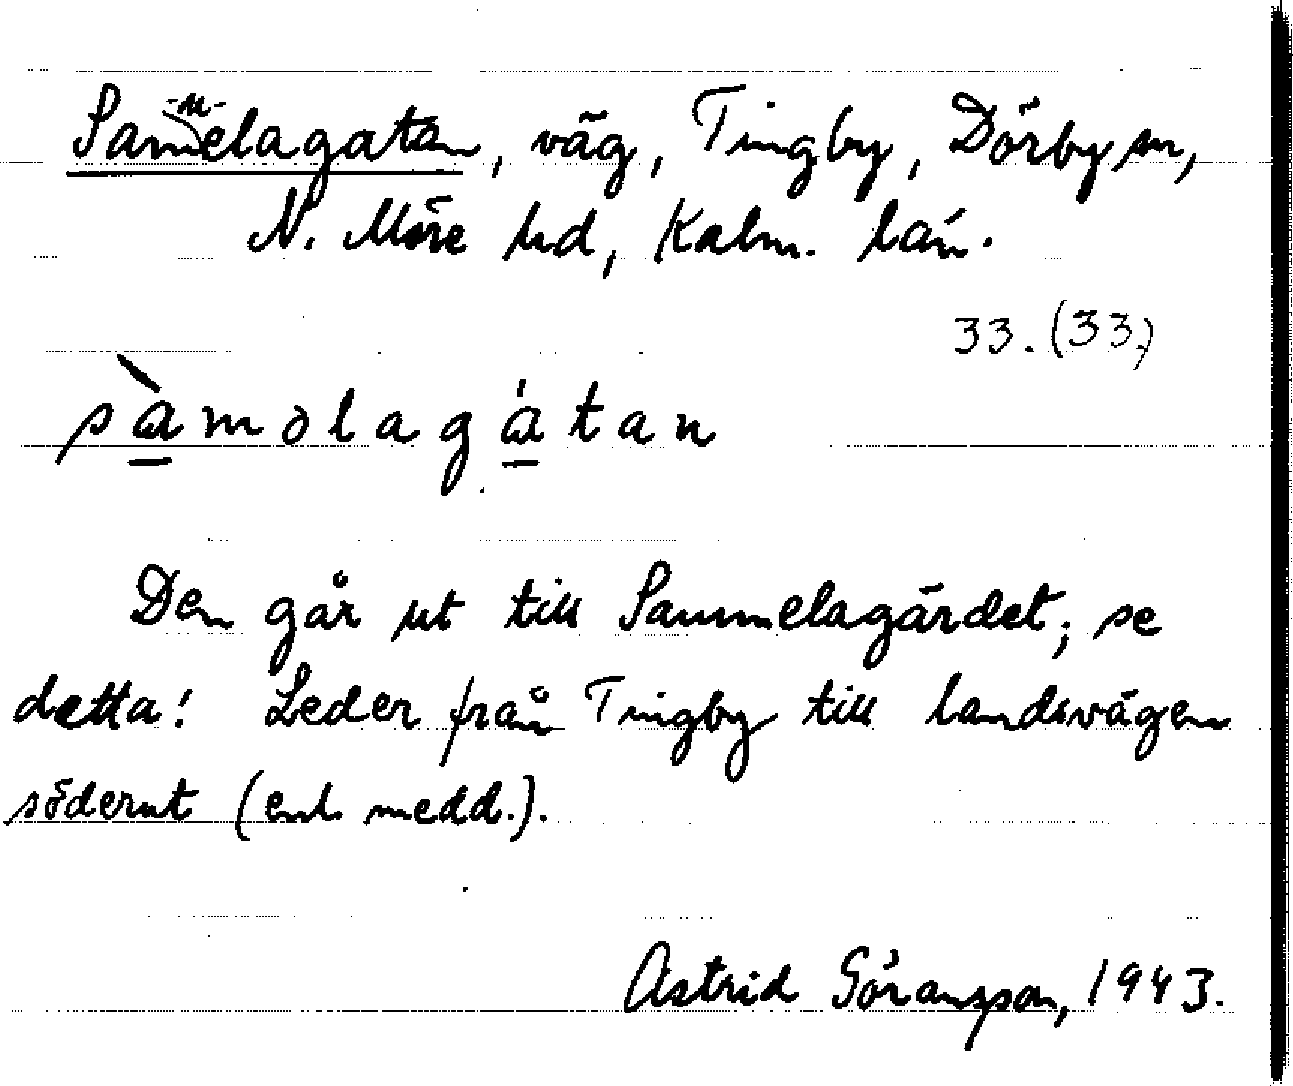 Sam-m-elagatan, väg, Tingby, Dörby sn,
N. Möre hd, Kalm. län.
33. (33.)
sàmolagátan
Den går ut till Sammelagärdet; se
detta! Leder från Tingby till landsvägen
söderut (enl. medd.).
Astrid Göransson, 1943.